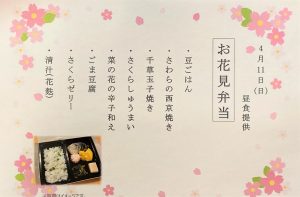 4月11日(日)
昼食提供
お花見弁当
・豆ごはん
・さわらの西京焼き
・千草玉子焼き
・さくらしゅうまい
・菜の花の辛子和え
・ごま豆腐
・さくらゼリー
・清汁(花麩)